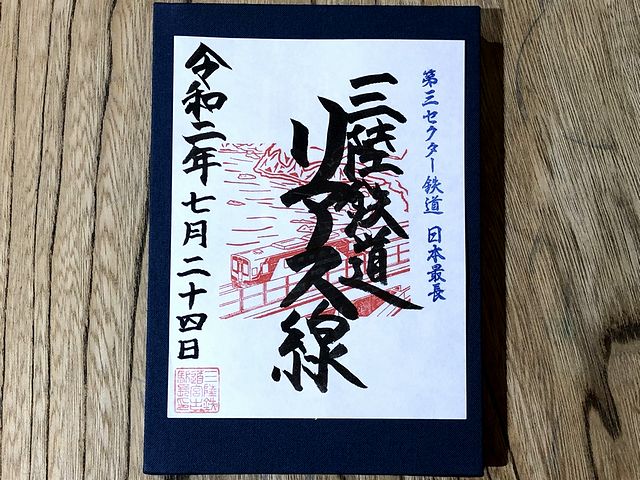 第三セクター鉄道 日本最長
三陸鉄道
リアス線
令和二年七月二十四日
三陸鉄
道宮古
駅長印